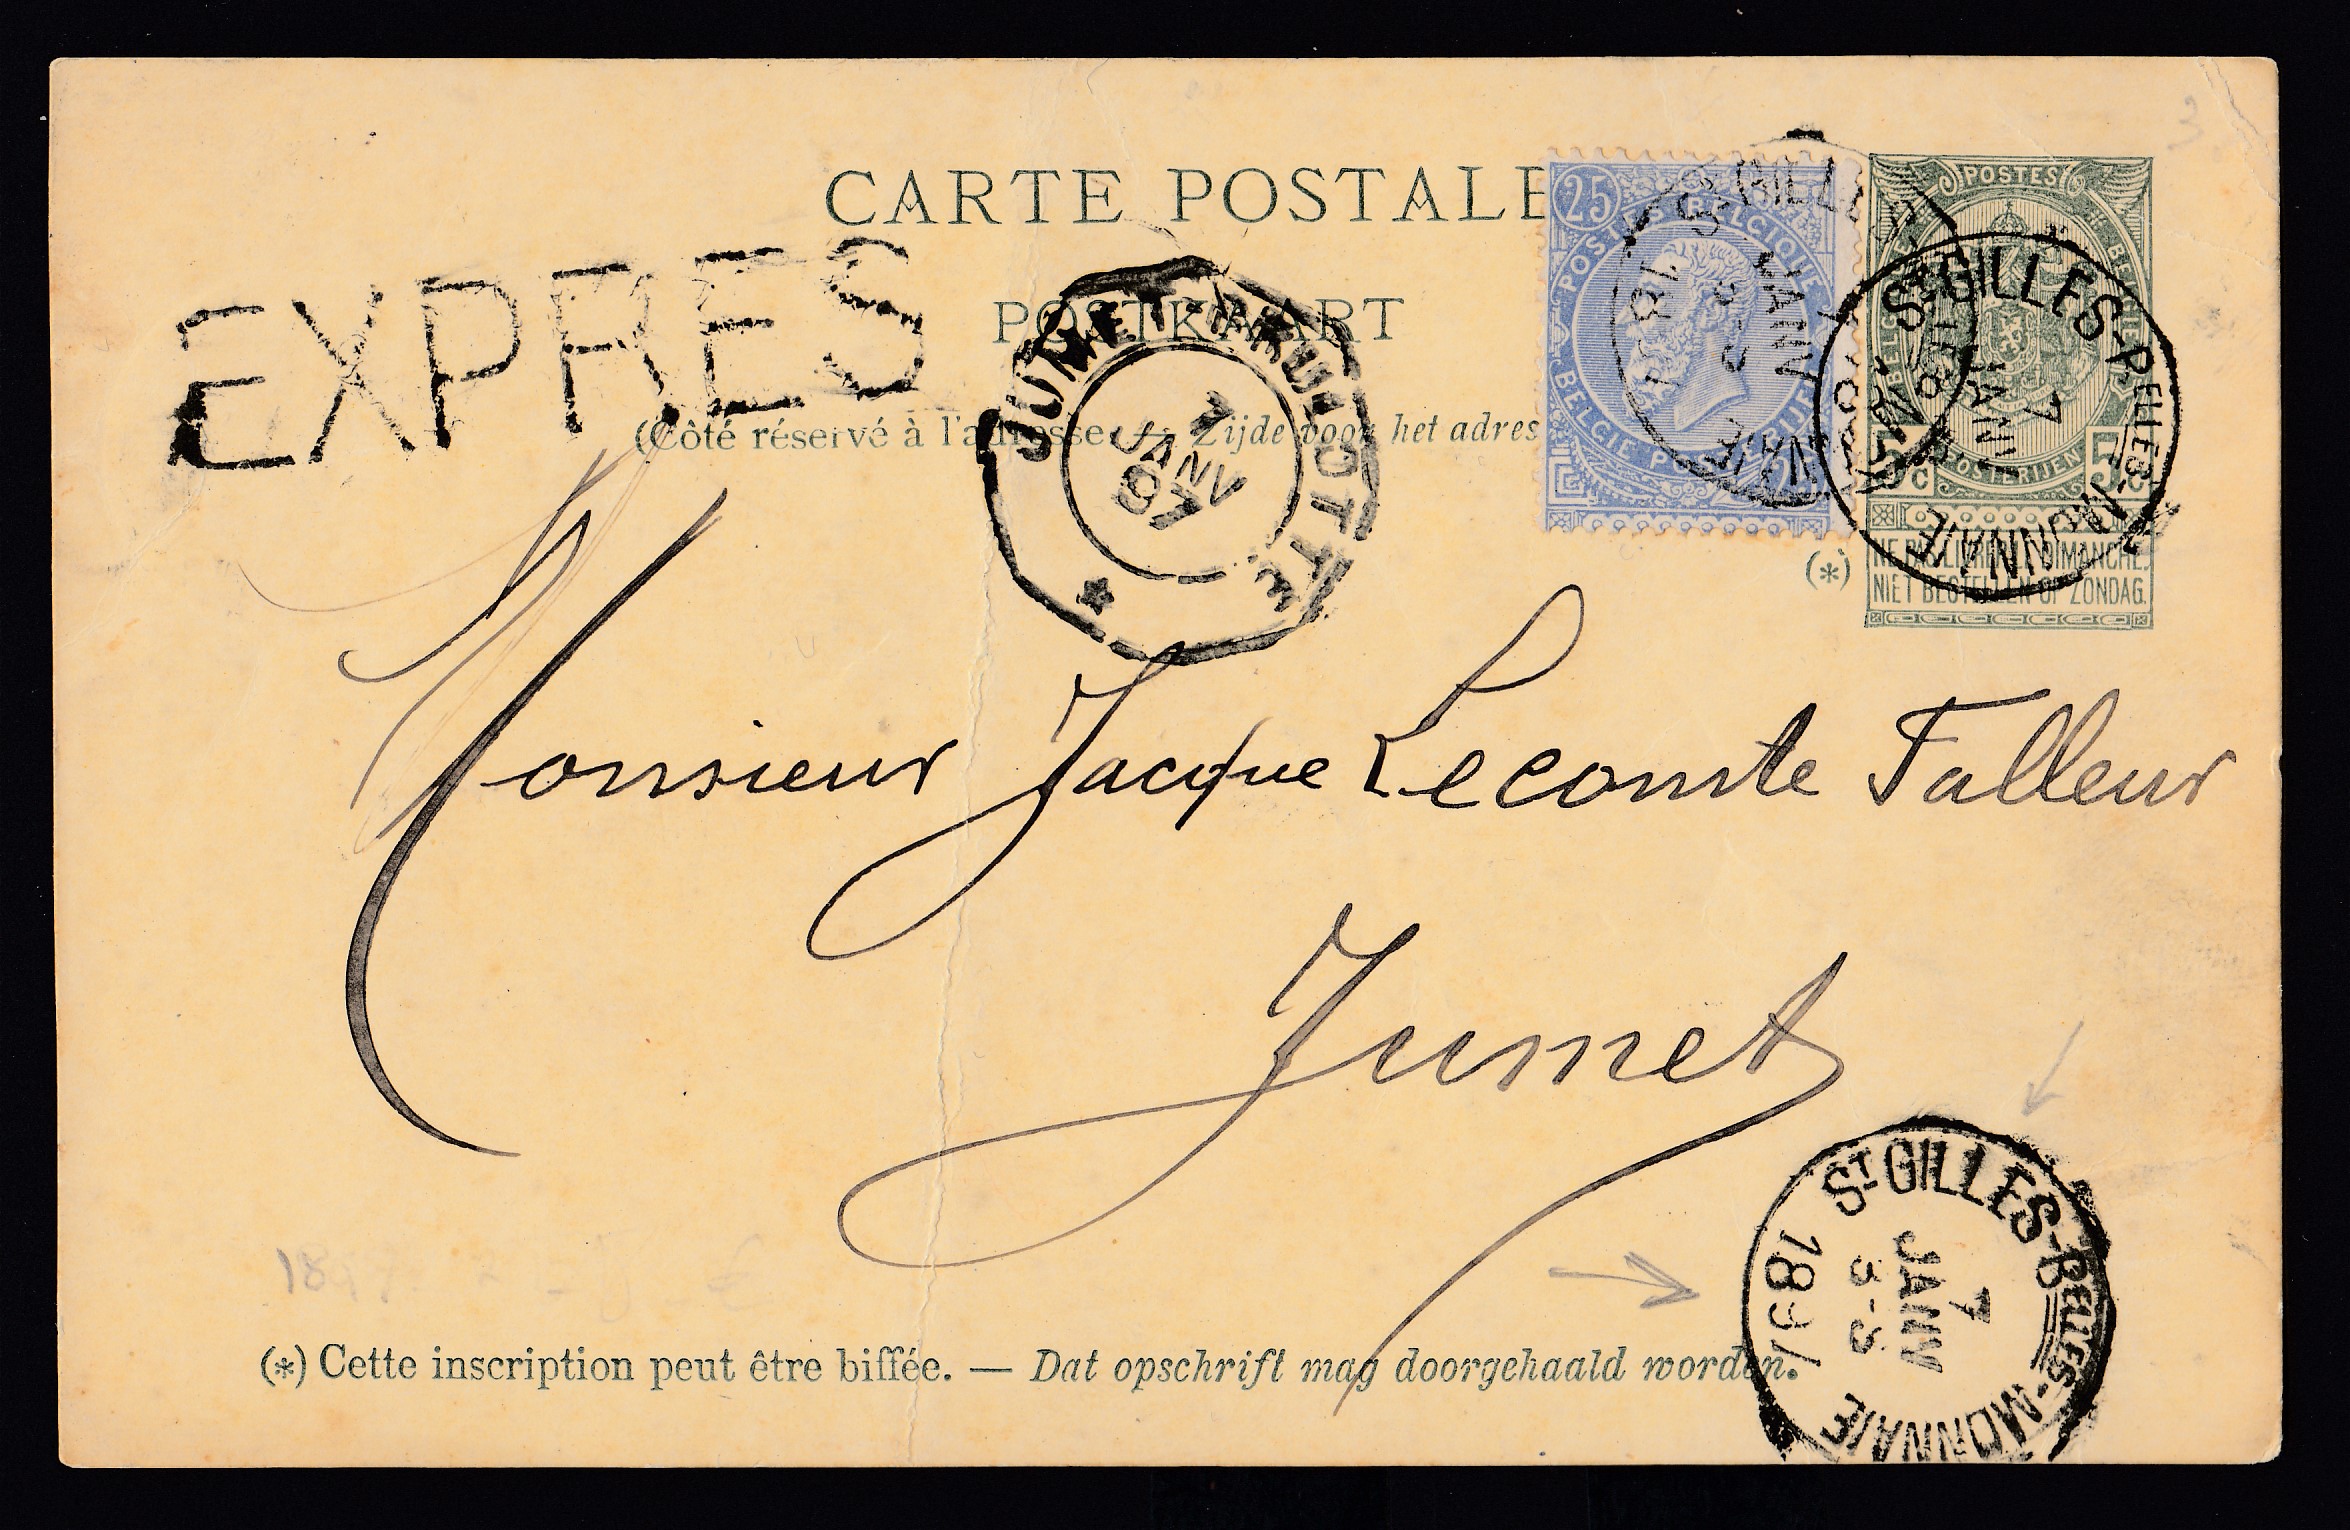 CARTE POSTALE
EXPRES
POSTKAART
(Côté réservé à l'adresse. — Zijde voor het adres
JUMET
7
JANV
97
25
POSTES BELGIQUE
BELGIE POSTERIJEN
ST GILLES
JANV
POSTES
BELGIQUE
BELGIE
5c 5c
POSTERIJEN
ST GILLES-BELLES-MONNAIE
7
JANV
(*)
NE PAS LIVRER LE DIMANCHE.
NIET BESTELLEN OP ZONDAG.
Monsieur Jacque Lecomte Falleur
Jumet
ST GILLES-BELLES-MONNAIE
7
JANV
1897
(*) Cette inscription peut être biffée. — Dat opschrift mag doorgehaald worden.